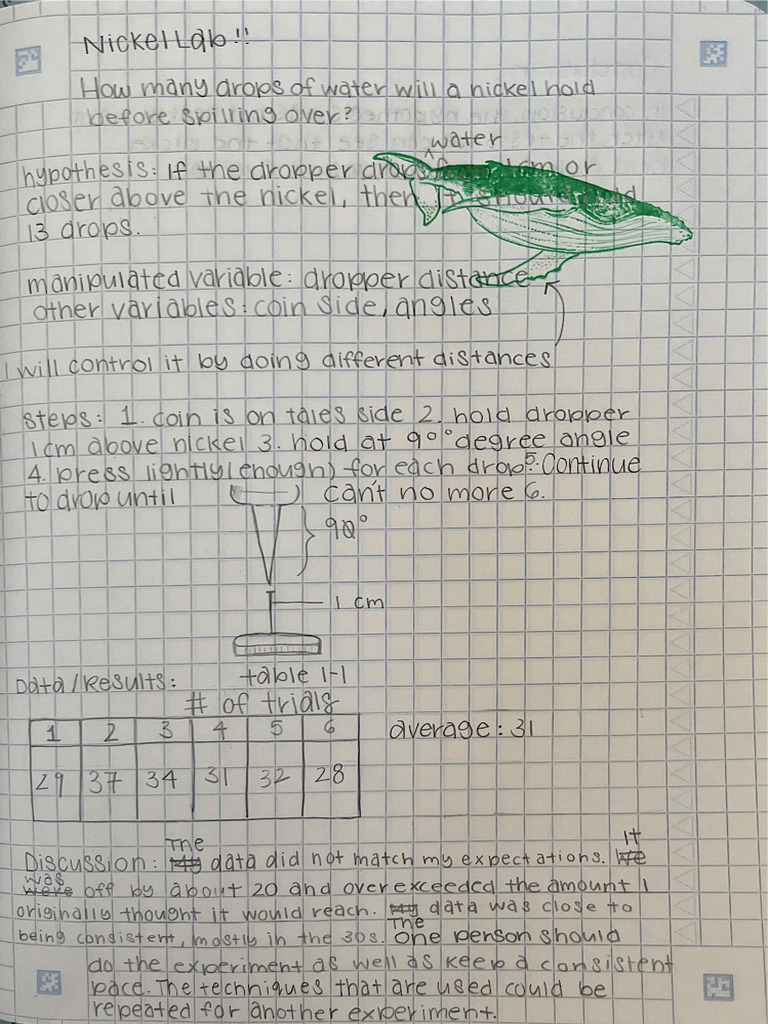 Nickel Lab!!
How many drops of water will a nickel hold
before spilling over?
water
hypothesis: If the dropper drops from 1cm or
closer above the nickel, then it should hold
13 drops.
manipulated variable: dropper distance
other variables: coin side, angles
I will control it by doing different distances
steps: 1. coin is on tales side 2. hold dropper
1cm above nickel 3. hold at 90° degree angle
4. press lightly (enough) for each drop 5. Continue
to drop until can't no more 6.
90°
1 cm
Data/Results: table 1-1
# of trials
1 2 3 4 5 6 average: 31
29 37 34 31 32 28
The It
Discussion: My data did not match my expectations. We
was
were off by about 20 and over exceeded the amount I
originally thought it would reach. My data was close to
The
being consistent, mostly in the 30s. One person should
do the experiment as well as keep a consistent
pace. The techniques that are used could be
repeated for another experiment.